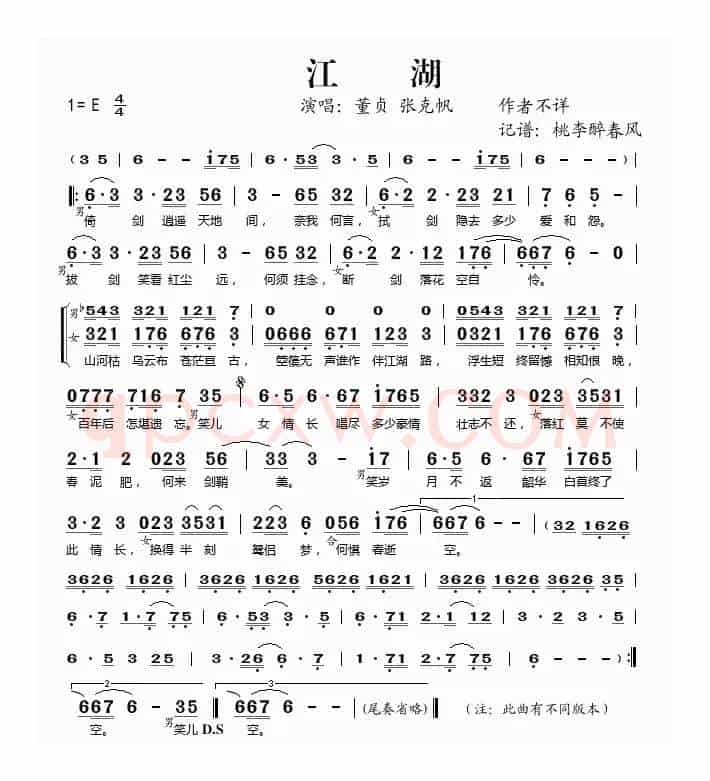 江 湖
1= E 4/4 演唱：董贞 张克帆 作者不详
记谱：桃李醉春风
( 3 5 | 6 - - i75 | 6 · 53 3 · 5 | 6 - - i75 | 6 - - - ) |
|: 6 · 3 3 · 23 56 | 3 - 65 32 | 6 · 2 2 · 23 21 | 7 6 5 - |
男 倚 剑 逍遥 天地 间，奈我 何言，女 拭 剑 隐去 多少 爱 和 怨。
6 · 3 3 · 23 56 | 3 - 65 32 | 6 · 2 2 · 12 176 | 667 6 - 0
男 拔 剑 笑看 红尘 远，何须 挂念，女 断 剑 落花 空自 怜。
男 b543 321 121 7 | 0 0 0 0 | 0543 321 121 7 |
女 321 176 676 3 | 0666 671 123 3 | 0321 176 676 3 |
山河枯 乌云布 苍茫亘 古， 无 声谁作 伴江湖 路， 浮生短 终留憾 相知恨 晚，
0777 716 7 35 | 6 · 5 6 · 67 i765 | 332 3 023 3531 |
女 百年后 怎堪遗 忘。男 笑儿 女 情 长 唱尽 多少豪情 壮志 不 还，女 落红 莫 不使
2 · 1 2 023 56 | 3 3 - i7 | 6 · 5 6 · 67 i765 |
春 泥 肥，何来 剑鞘 美。 男 笑岁 月 不 返 韶华 白首终了
1
3 · 2 3 023 3531 | 223 6 056 i76 | 667 6 - - | (32 1626
此 情 长，女 换得 半 刻 鸳侣 梦，合 何惧 春逝 空。
3626 1626 | 3626 1626 5626 1626 | 3626 1626 3626 35 |
6 · 7 1 · 7 75 | 6 · 53 3 · 5 | 6 · 71 2 · 1 12 | 3 - - - |
6 · 5 3 235 | 3 · 26 6 · 7 | 6 · 71 2 · 7 75 | 6 - - - ) :|
2 3
667 6 - 35 || 667 6 - - | (尾奏省略) || (注：此曲有不同版本)
空。 男 笑儿 D.S 空。
qpcxw.COM